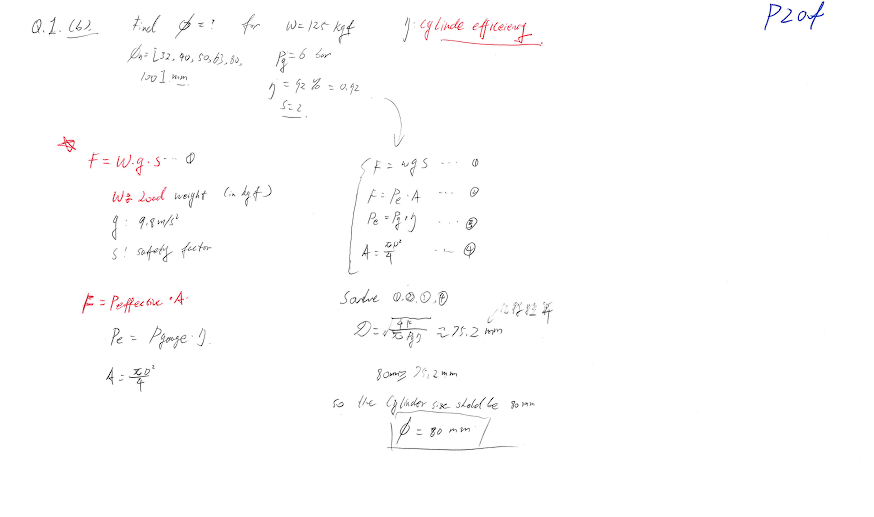 Q.1.(b). Find ϕ = ? for W = 125 kgf η: Cylinde efficiency
P2of
ϕn = [32, 40, 50, 63, 80, 100] mm
Pg = 6 bar
η = 92% = 0.92
S = 2
F = W·g·s ··· ①
W: Load weight (in kgf)
g: 9.8 m/s²
s: safety factor
F = Peffective · A
Pe = Pgauge · η.
A = πD²/4
F = W g S ··· ①
F = Pe · A ··· ②
Pe = Pg · η ··· ③
A = πD²/4 ··· ④
Solve ①,②,①,④
D = √(4F/πPgη) ≈ 75.2 mm
80mm ≥ 75.2 mm
so the Cylinder size should be 80 mm
ϕ = 80 mm